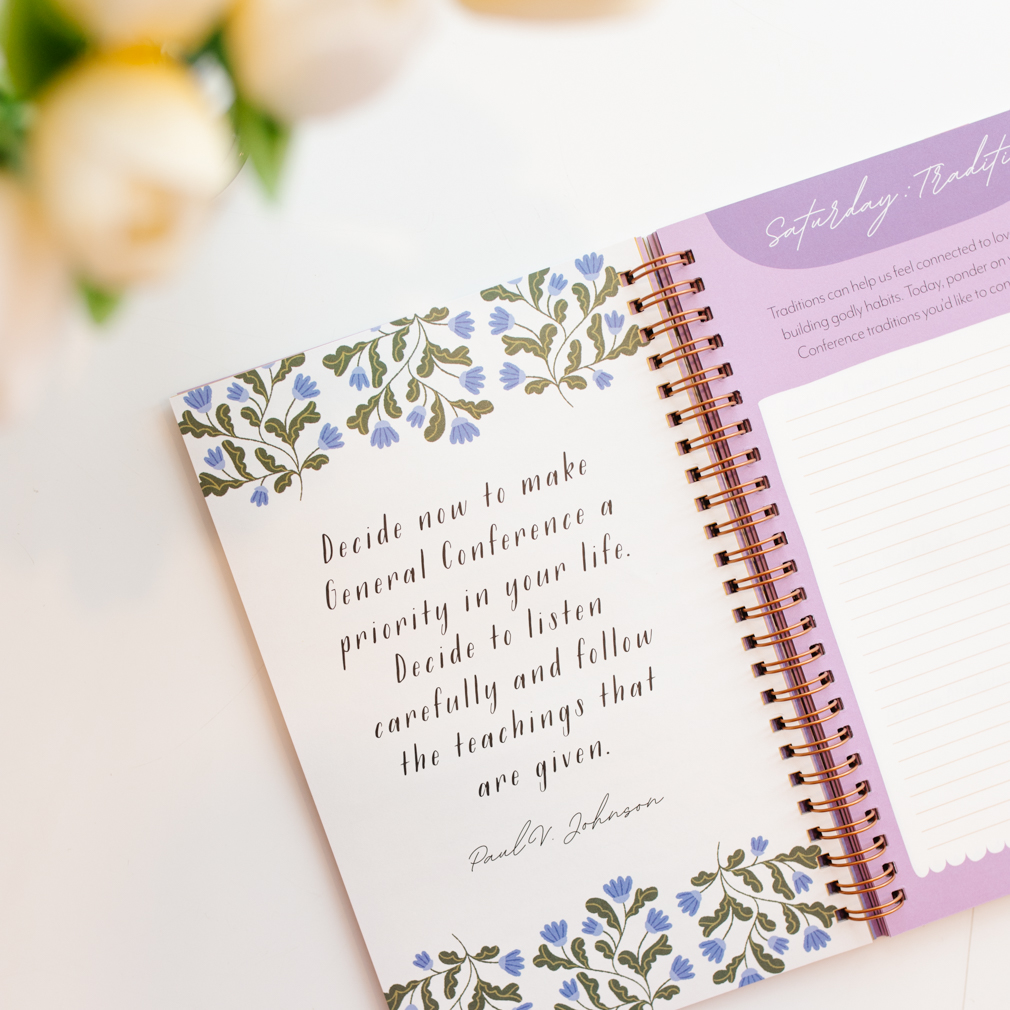 Decide now to make
General Conference a
priority in your life.
Decide to listen
carefully and follow
the teachings that
are given.
Paul V. Johnson
Saturday:
Traditions can help us feel connected to
building godly habits. Today, ponder on
Conference traditions you'd like to